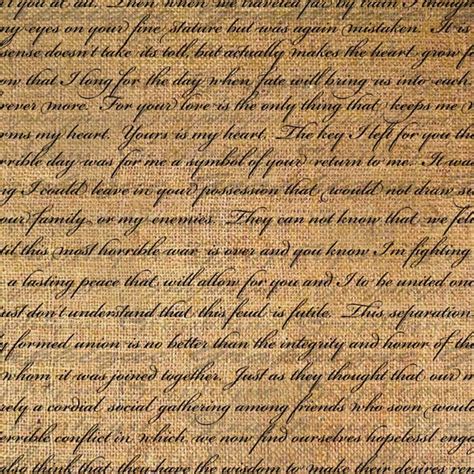 you at all. Then when we traveled far by train I though
my eyes on your fine stature but was again mistaken. It is
sense doesn't take its toll but actually makes the heart grow f
now that I long for the day when fate will bring us into each
rever more. For your love is the only thing that keeps me
orms my heart. Yours is my heart. The key I left for you th
rrible day was for me a symbol of your return to me. It wa
ng I could leave in your possession that would not draw s
our family, or my enemies. They can not know that we fe
til this most horrible war is over and you know I'm fighting
a lasting peace that will allow for you and I to be united on
ust don't understand that this feud is futile. This separation
y formed union is no better than the integrity and honor of th
whom it was joined together. Just as they thought that our r
rely a cordial social gathering among friends who soon woul
errible conflict in which, we now find ourselves hopelessl eng
lso think that they have the wisdom to make this